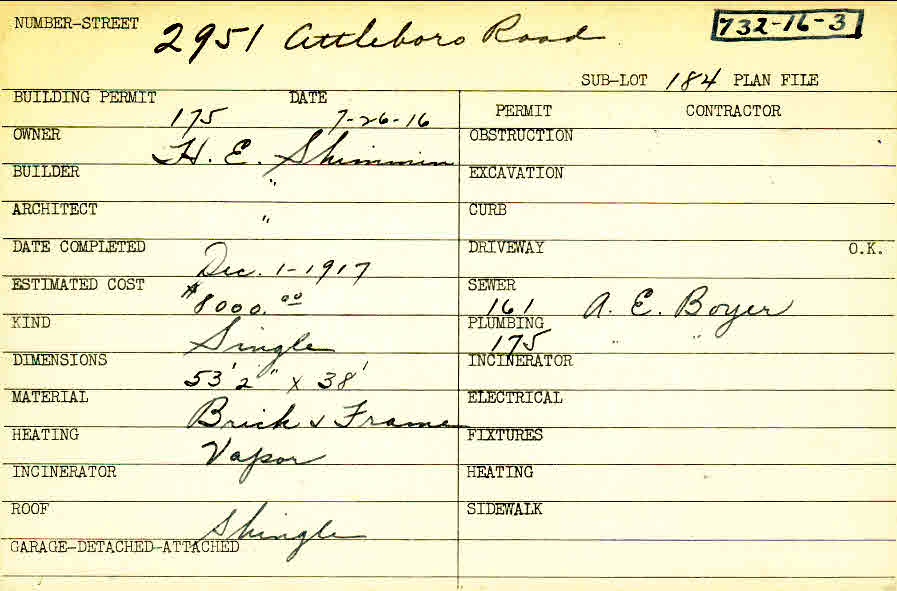 NUMBER-STREET 2951 Attleboro Road 732-16-3
SUB-LOT 184 PLAN FILE
BUILDING PERMIT 175 DATE 7-26-16
PERMIT CONTRACTOR
OWNER H. E. Shimmin
OBSTRUCTION
BUILDER "
EXCAVATION
ARCHITECT "
CURB
DATE COMPLETED Dec. 1-1917
DRIVEWAY O.K.
ESTIMATED COST $8000.00
SEWER 161 A. E. Boyer
KIND Single
PLUMBING 175 " "
DIMENSIONS 53'2" x 38'
INCINERATOR
MATERIAL Brick & Frame
ELECTRICAL
HEATING Vapor
FIXTURES
INCINERATOR
HEATING
ROOF Shingle
SIDEWALK
GARAGE-DETACHED-ATTACHED